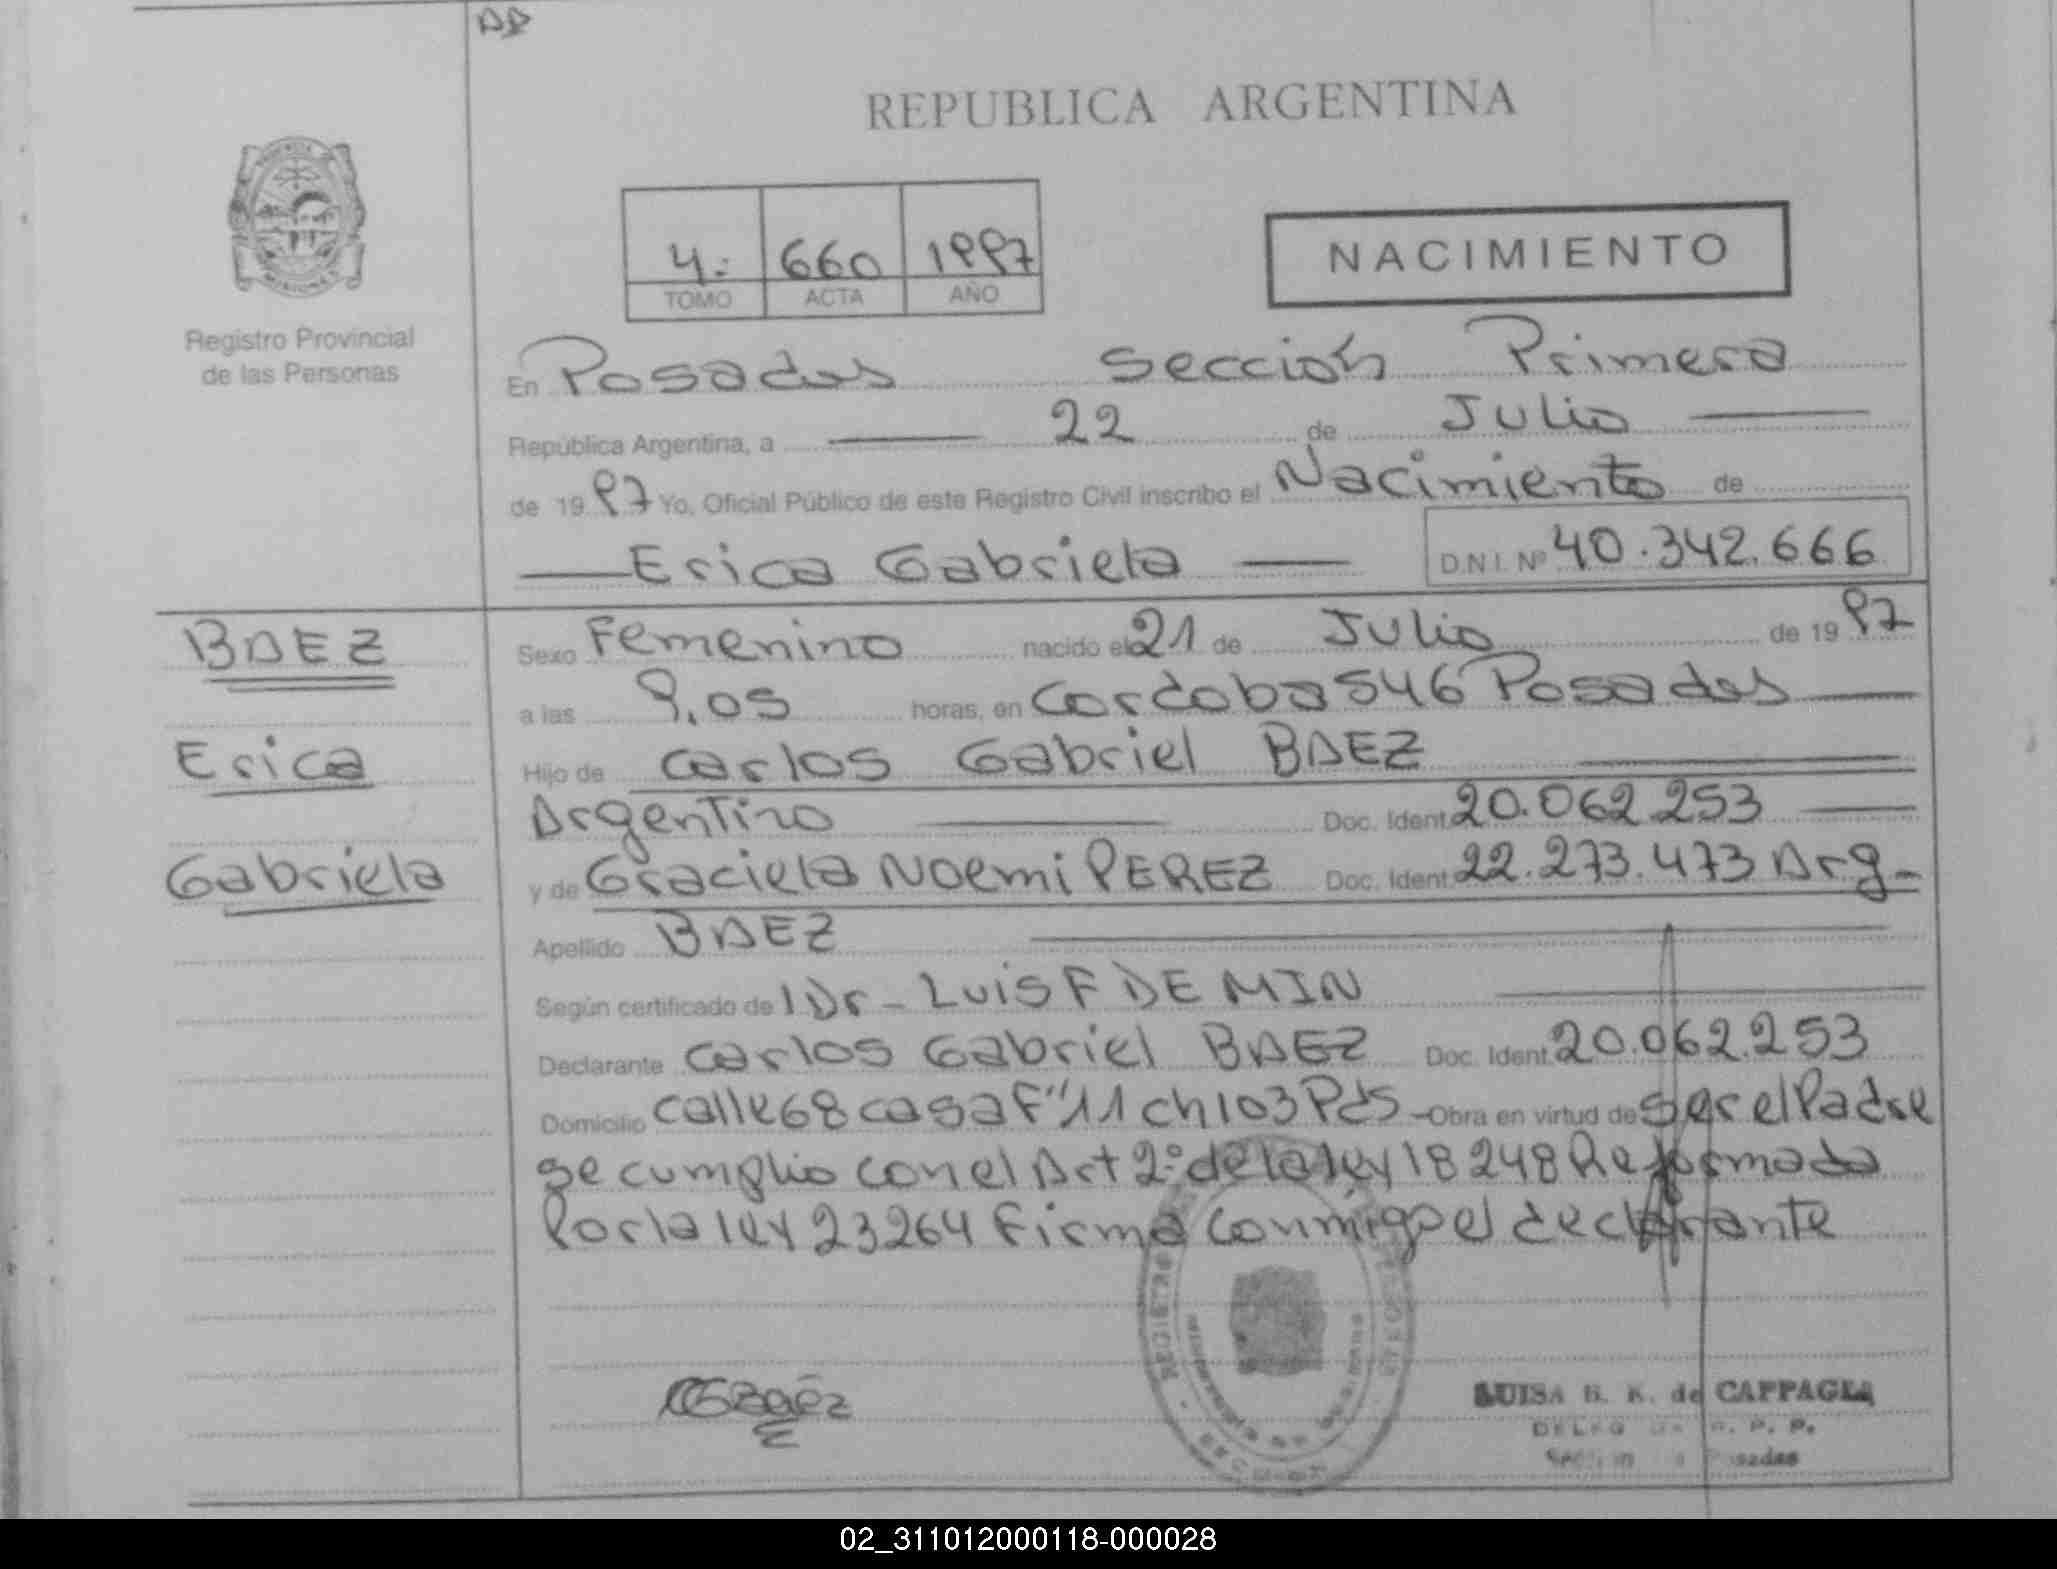 REPUBLICA ARGENTINA
4: 660 1997
TOMO ACTA AÑO
NACIMIENTO
Registro Provincial
de las Personas
En Posadas Sección Primera
República Argentina, a 22 de Julio
de 1997 Yo, Oficial Público de este Registro Civil inscribo el Nacimiento de
Erica Gabriela D.N.I. Nº 40.342.666
BAEZ
Erica
Gabriela
Sexo Femenino nacido el 21 de Julio de 1997
a las 9,05 horas, en Cordoba 546 Posadas
Hijo de Carlos Gabriel BAEZ
Argentino Doc. Ident. 20.062.253
y de Graciela Noemi PEREZ Doc. Ident. 22.273.473 Arg-
Apellido BAEZ
Según certificado de Dr- Luis F DE MIN
Declarante Carlos Gabriel BAEZ Doc. Ident. 20.062.253
Domicilio calle 68 casa F"11 ch 103 Pds - Obra en virtud de ser el Padre
se cumplio con el Art 2º de la ley 18248 Reformada
Por la ley 23264 Firma conmigo el declarante
CGBaez
LUISA B. K. de CAPPAGLI
R. P. P.
Posadas
02_311012000118-000028